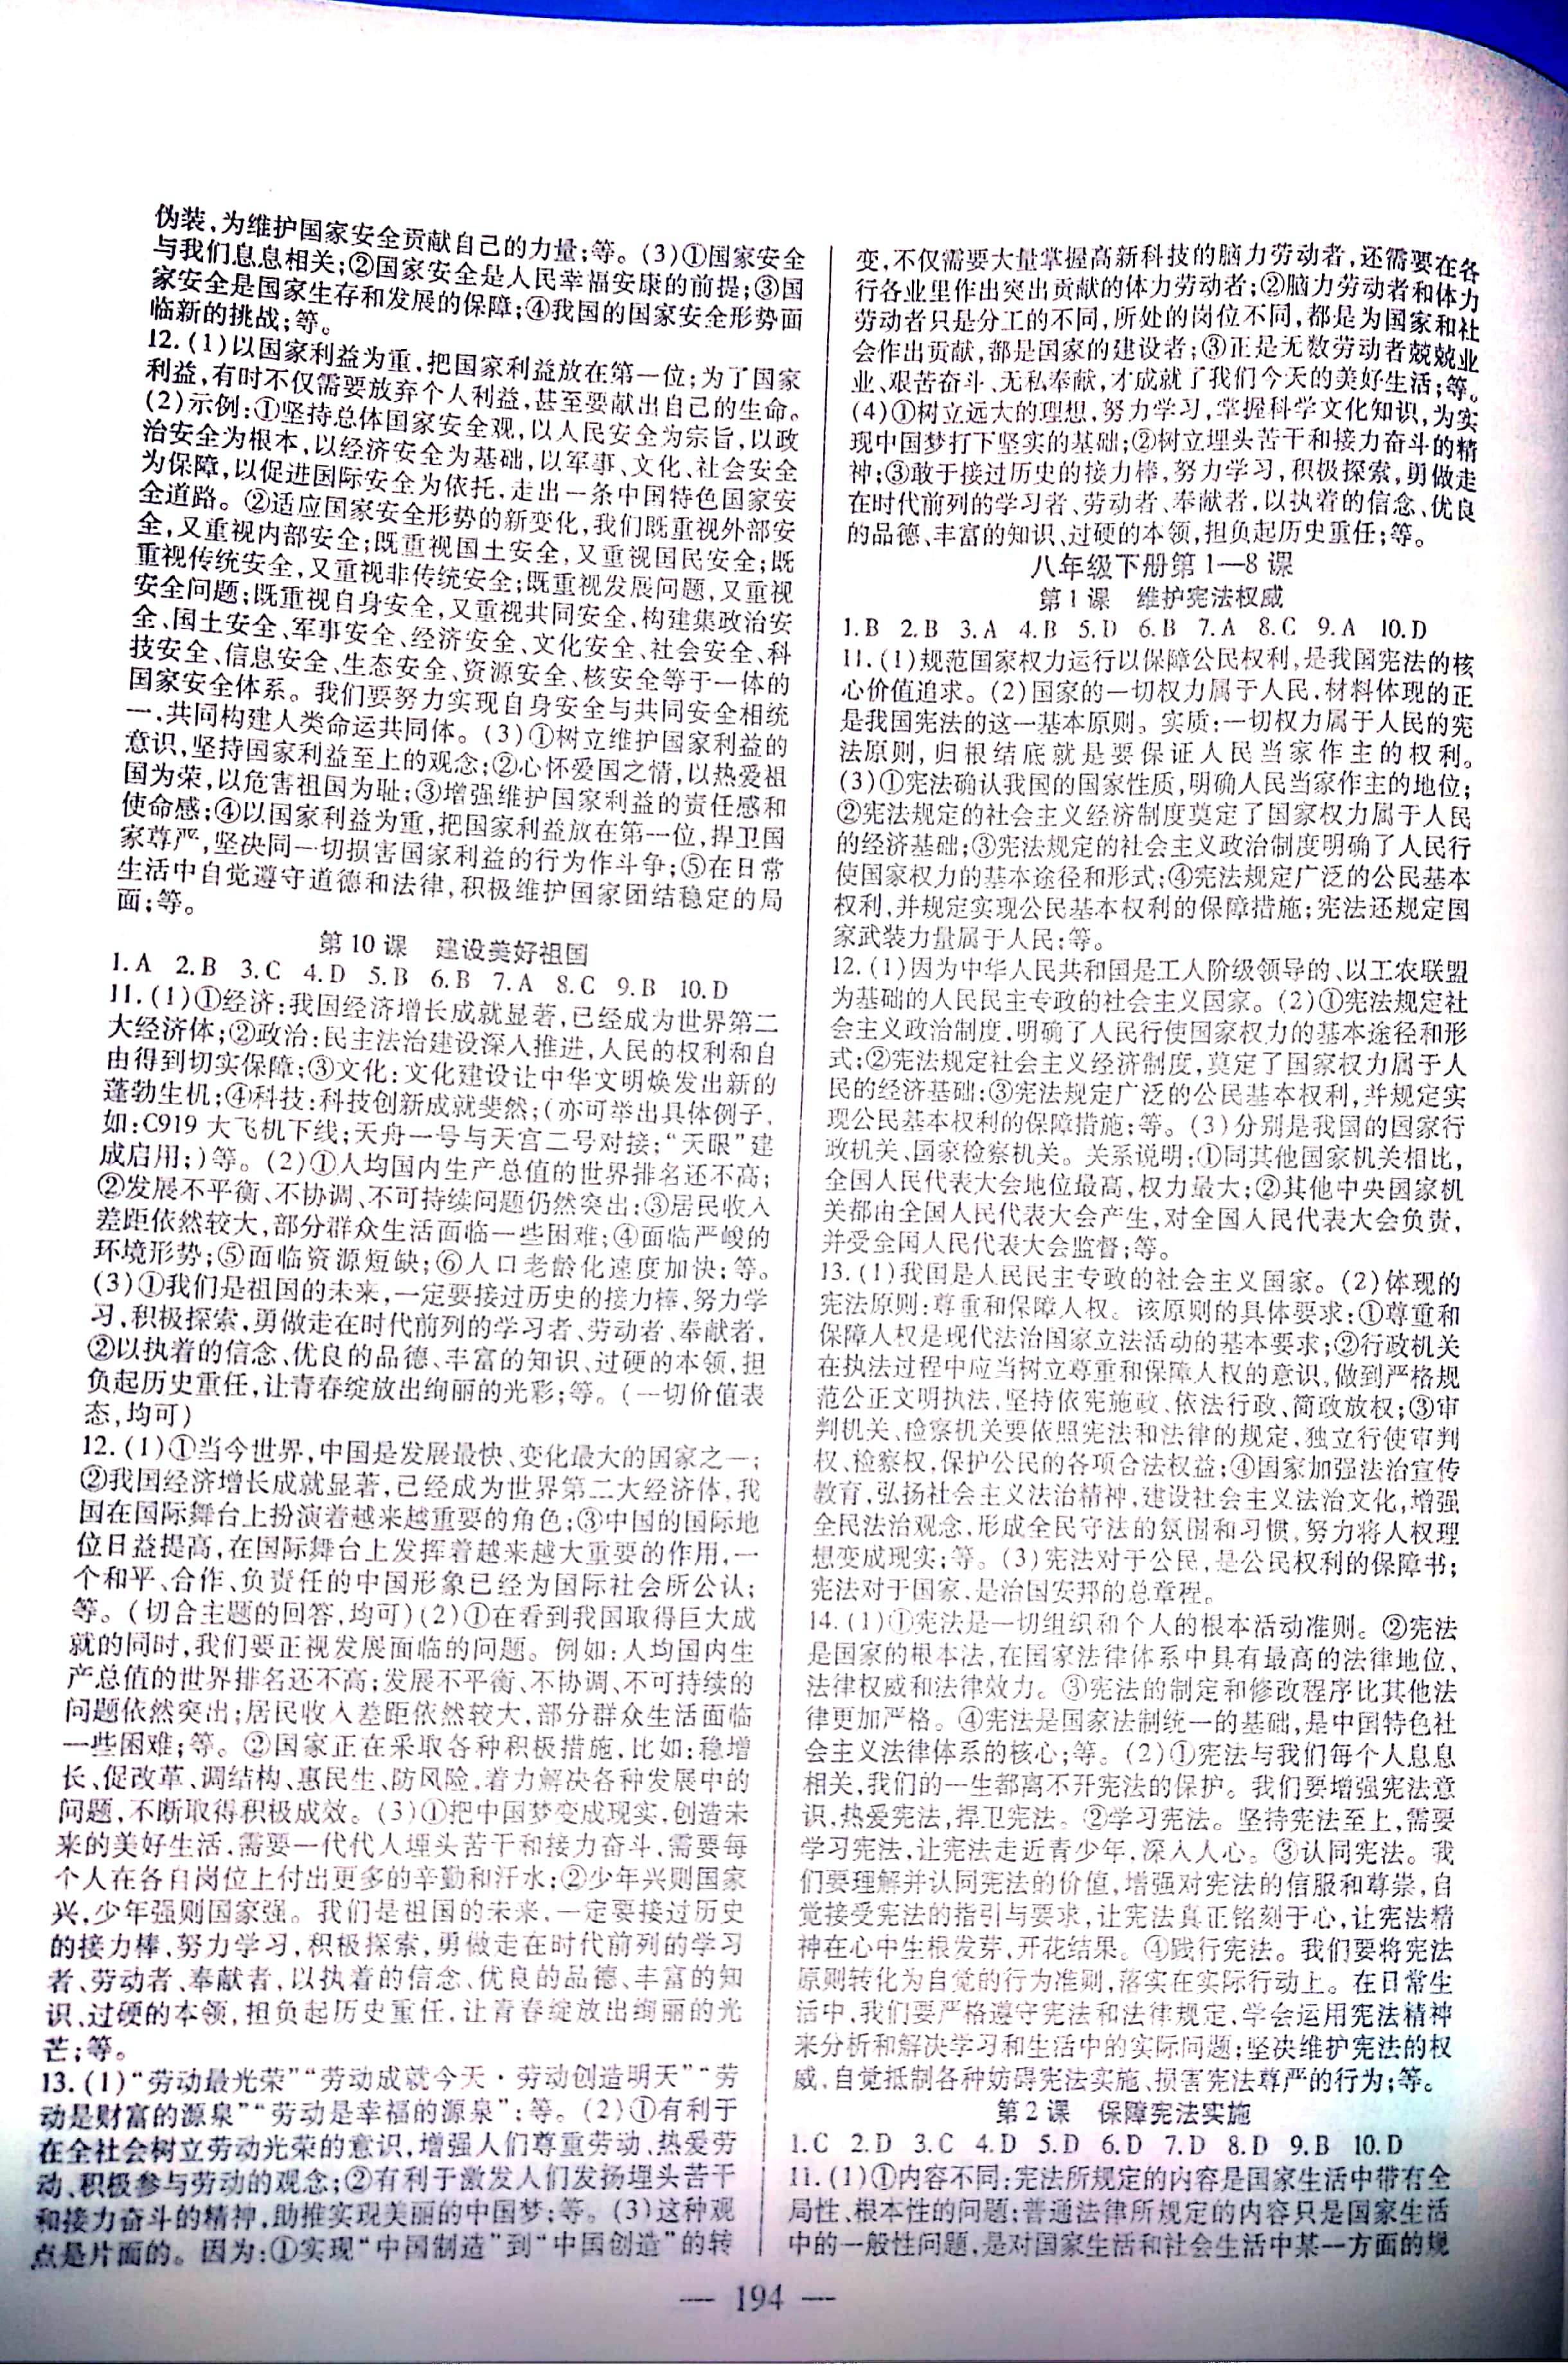 伪装,为维护国家安全贡献自己的力量;等。(3)①国家安全
与我们息息相关;②国家安全是人民幸福安康的前提;③国
家安全是国家生存和发展的保障;④我国的国家安全形势面
临新的挑战;等。
12.(1)以国家利益为重,把国家利益放在第一位;为了国家
利益,有时不仅需要放弃个人利益,甚至要献出自己的生命。
(2)示例:①坚持总体国家安全观,以人民安全为宗旨,以政
治安全为根本,以经济安全为基础,以军事、文化、社会安全
为保障,以促进国际安全为依托,走出一条中国特色国家安
全道路。②适应国家安全形势的新变化,我们既重视外部安
全,又重视内部安全;既重视国土安全,又重视国民安全;既
重视传统安全,又重视非传统安全;既重视发展问题,又重视
安全问题;既重视自身安全,又重视共同安全,构建集政治安
全、国土安全、军事安全、经济安全、文化安全、社会安全、科
技安全、信息安全、生态安全、资源安全、核安全等于一体的
国家安全体系。我们要努力实现自身安全与共同安全相统
一,共同构建人类命运共同体。(3)①树立维护国家利益的
意识,坚持国家利益至上的观念;②心怀爱国之情,以热爱祖
国为荣,以危害祖国为耻;③增强维护国家利益的责任感和
使命感;④以国家利益为重,把国家利益放在第一位,捍卫国
家尊严,坚决同一切损害国家利益的行为作斗争;⑤在日常
生活中自觉遵守道德和法律,积极维护国家团结稳定的局
面;等。
第10课 建设美好祖国
1.A 2.B 3.C 4.D 5.B 6.B 7.A 8.C 9.B 10.D
11.(1)①经济:我国经济增长成就显著,已经成为世界第二
大经济体;②政治:民主法治建设深入推进,人民的权利和自
由得到切实保障;③文化:文化建设让中华文明焕发出新的
蓬勃生机;④科技:科技创新成就斐然;(亦可举出具体例子,
如:C919大飞机下线;天舟一号与天宫二号对接;“天眼”建
成启用;)等。(2)①人均国内生产总值的世界排名还不高;
②发展不平衡、不协调、不可持续问题仍然突出;③居民收入
差距依然较大,部分群众生活面临一些困难;④面临严峻的
环境形势;⑤面临资源短缺;⑥人口老龄化速度加快;等。
(3)①我们是祖国的未来,一定要接过历史的接力棒,努力学
习,积极探索,勇做走在时代前列的学习者、劳动者、奉献者,
②以执着的信念、优良的品德、丰富的知识、过硬的本领,担
负起历史重任,让青春绽放出绚丽的光彩;等。(一切价值表
态,均可)
12.(1)①当今世界,中国是发展最快、变化最大的国家之一;
②我国经济增长成就显著,已经成为世界第二大经济体,我
国在国际舞台上扮演着越来越重要的角色;③中国的国际地
位日益提高,在国际舞台上发挥着越来越大重要的作用,一
个和平、合作、负责任的中国形象已经为国际社会所公认;
等。(切合主题的回答,均可)(2)①在看到我国取得巨大成
就的同时,我们要正视发展面临的问题。例如:人均国内生
产总值的世界排名还不高;发展不平衡、不协调、不可持续的
问题依然突出;居民收入差距依然较大,部分群众生活面临
一些困难;等。②国家正在采取各种积极措施,比如:稳增
长、促改革、调结构、惠民生、防风险,着力解决各种发展中的
问题,不断取得积极成效。(3)①把中国梦变成现实,创造未
来的美好生活,需要一代代人埋头苦干和接力奋斗,需要每
个人在各自岗位上付出更多的辛勤和汗水;②少年兴则国家
兴,少年强则国家强。我们是祖国的未来,一定要接过历史
的接力棒,努力学习,积极探索,勇做走在时代前列的学习
者、劳动者、奉献者,以执着的信念、优良的品德、丰富的知
识、过硬的本领,担负起历史重任,让青春绽放出绚丽的光
芒;等。
13.(1)“劳动最光荣”“劳动成就今天·劳动创造明天”“劳
动是财富的源泉”“劳动是幸福的源泉”;等。(2)①有利于
在全社会树立劳动光荣的意识,增强人们尊重劳动、热爱劳
动、积极参与劳动的观念;②有利于激发人们发扬埋头苦干
和接力奋斗的精神,助推实现美丽的中国梦;等。(3)这种观
点是片面的。因为:①实现“中国制造”到“中国创造”的转
变,不仅需要大量掌握高新科技的脑力劳动者,还需要在各
行各业里作出突出贡献的体力劳动者;②脑力劳动者和体力
劳动者只是分工的不同,所处的岗位不同,都是为国家和社
会作出贡献,都是国家的建设者;③正是无数劳动者兢兢业
业、艰苦奋斗、无私奉献,才成就了我们今天的美好生活;等。
(4)①树立远大的理想,努力学习,掌握科学文化知识,为实
现中国梦打下坚实的基础;②树立埋头苦干和接力奋斗的精
神;③敢于接过历史的接力棒,努力学习,积极探索,勇做走
在时代前列的学习者、劳动者、奉献者,以执着的信念、优良
的品德、丰富的知识、过硬的本领,担负起历史重任;等。
八年级下册第1—8课
第1课 维护宪法权威
1.B 2.B 3.A 4.B 5.D 6.B 7.A 8.C 9.A 10.D
11.(1)规范国家权力运行以保障公民权利,是我国宪法的核
心价值追求。(2)国家的一切权力属于人民,材料体现的正
是我国宪法的这一基本原则。实质:一切权力属于人民的宪
法原则,归根结底就是要保证人民当家作主的权利。
(3)①宪法确认我国的国家性质,明确人民当家作主的地位;
②宪法规定的社会主义经济制度奠定了国家权力属于人民
的经济基础;③宪法规定的社会主义政治制度明确了人民行
使国家权力的基本途径和形式;④宪法规定广泛的公民基本
权利,并规定实现公民基本权利的保障措施;宪法还规定国
家武装力量属于人民;等。
12.(1)因为中华人民共和国是工人阶级领导的、以工农联盟
为基础的人民民主专政的社会主义国家。(2)①宪法规定社
会主义政治制度,明确了人民行使国家权力的基本途径和形
式;②宪法规定社会主义经济制度,奠定了国家权力属于人
民的经济基础;③宪法规定广泛的公民基本权利,并规定实
现公民基本权利的保障措施;等。(3)分别是我国的国家行
政机关、国家检察机关。关系说明:①同其他国家机关相比,
全国人民代表大会地位最高,权力最大;②其他中央国家机
关都由全国人民代表大会产生,对全国人民代表大会负责,
并受全国人民代表大会监督;等。
13.(1)我国是人民民主专政的社会主义国家。(2)体现的
宪法原则:尊重和保障人权。该原则的具体要求:①尊重和
保障人权是现代法治国家立法活动的基本要求;②行政机关
在执法过程中应当树立尊重和保障人权的意识,做到严格规
范公正文明执法,坚持依宪施政、依法行政、简政放权;③审
判机关、检察机关要依照宪法和法律的规定,独立行使审判
权、检察权,保护公民的各项合法权益;④国家加强法治宣传
教育,弘扬社会主义法治精神,建设社会主义法治文化,增强
全民法治观念,形成全民守法的氛围和习惯,努力将人权理
想变成现实;等。(3)宪法对于公民,是公民权利的保障书;
宪法对于国家,是治国安邦的总章程。
14.(1)①宪法是一切组织和个人的根本活动准则。②宪法
是国家的根本法,在国家法律体系中具有最高的法律地位、
法律权威和法律效力。③宪法的制定和修改程序比其他法
律更加严格。④宪法是国家法制统一的基础,是中国特色社
会主义法律体系的核心;等。(2)①宪法与我们每个人息息
相关,我们的一生都离不开宪法的保护。我们要增强宪法意
识,热爱宪法,捍卫宪法。②学习宪法。坚持宪法至上,需要
学习宪法,让宪法走近青少年,深入人心。③认同宪法。我
们要理解并认同宪法的价值,增强对宪法的信服和尊崇,自
觉接受宪法的指引与要求,让宪法真正铭刻于心,让宪法精
神在心中生根发芽,开花结果。④践行宪法。我们要将宪法
原则转化为自觉的行为准则,落实在实际行动上。在日常生
活中,我们要严格遵守宪法和法律规定,学会运用宪法精神
来分析和解决学习和生活中的实际问题;坚决维护宪法的权
威,自觉抵制各种妨碍宪法实施、损害宪法尊严的行为;等。
第2课 保障宪法实施
1.C 2.D 3.C 4.D 5.D 6.D 7.D 8.D 9.B 10.D
11.(1)①内容不同:宪法所规定的内容是国家生活中带有全
局性、根本性的问题;普通法律所规定的内容只是国家生活
中的一般性问题,是对国家生活和社会生活中某一方面的规
— 194 —